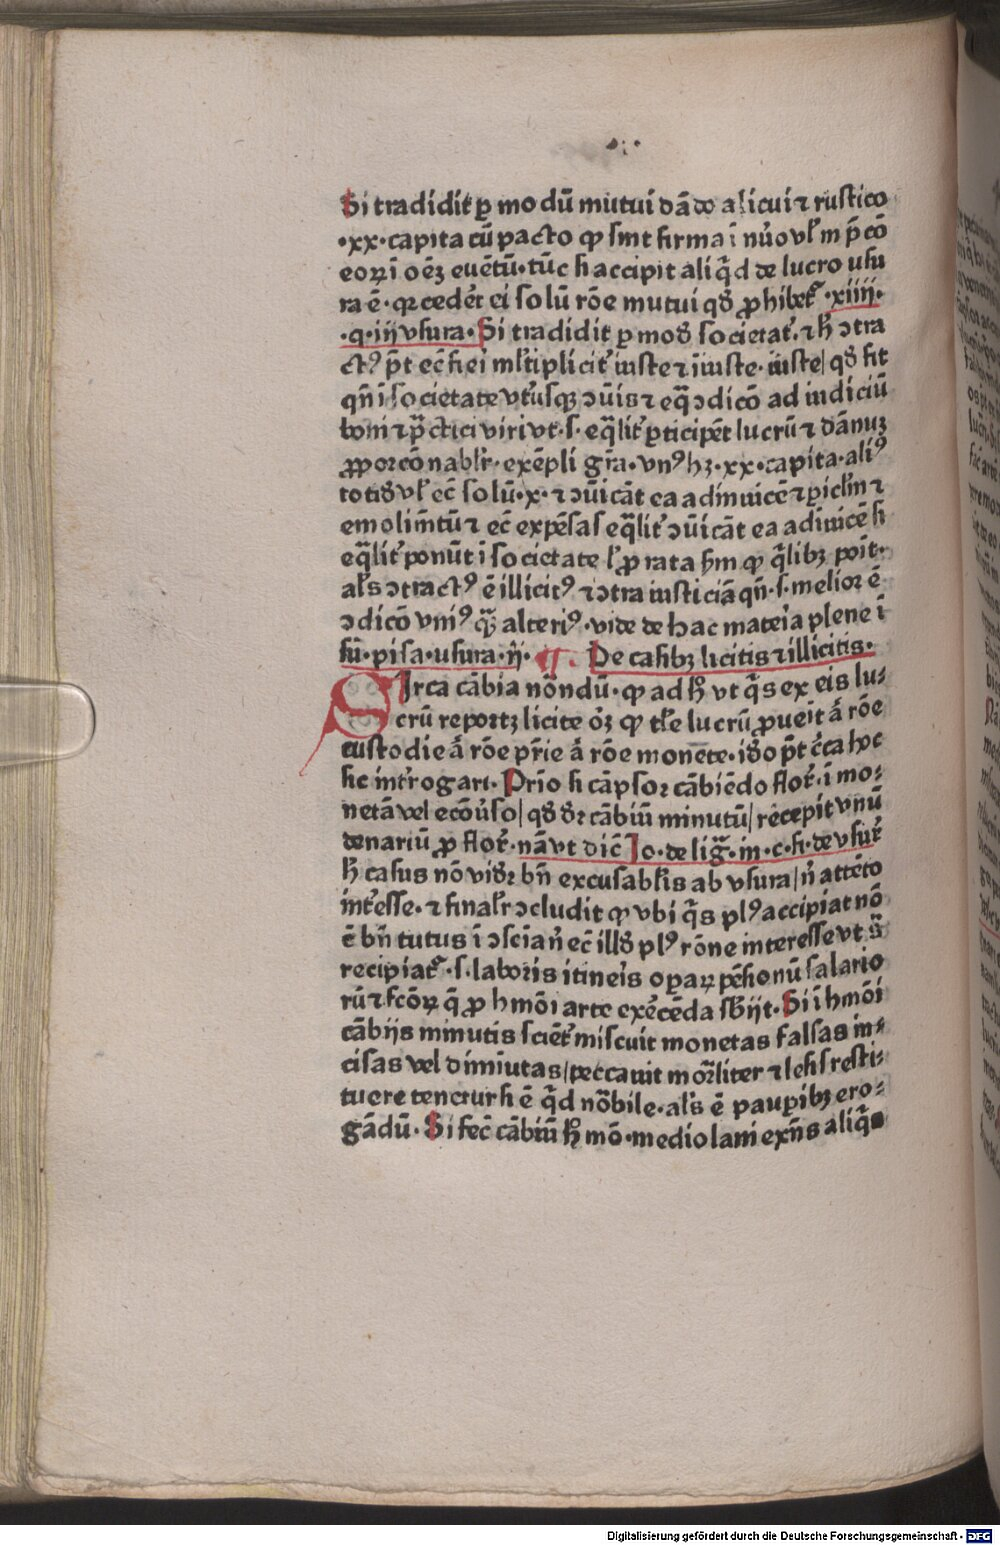 Si tradidit ꝑ modū mutui dādo alicui ⁊ rustico
·xx·capita cū pacto ꝙ sint firma ī nūo vl̓ in p̄cō
eoꝝ ī oēꝫ euētū·tūc si accipit aliq̄d de lucro usu
ra ē·qꝛ cedēt ei solū rōe mutui qd̓ ꝓhibet᷑·xiiij·
·q·iij vsura·Si tradidit ꝑ mod̓ societat᷑·⁊ h̓ ↄtra
ctꝰ p̄t ecī fieri ml̓tiplicit᷑ iuste ⁊ īiuste·iuste/qd̓ fit
qn̄ ī societate vt̓usqꝫ ↄūis ⁊ eq̄ ↄdicō ad iudiciū
boni ⁊ p̄ctici viri vt·s·eq̄lit᷑ ꝑticipēt lucrū ⁊ dānuꝫ
ꝓporcōnabl̓r·exēpli gr̄a·vnꝰ hꝫ·xx·capita·aliꝰ
totid̓ vl̓ ecī solū·x·⁊ ↄūicāt ea adinuicē ⁊ ꝑicl̓m ⁊
emolim̄tū ⁊ ecī expēsas eq̄lit᷑ ↄūicāt ea adīuicē si
eq̄lit᷑ ponūt ī societate l̓ ꝓ rata hm̄ ꝙ q̄libꝫ poīt·
al̓s ↄtractꝰ ē illicitꝰ ⁊ ↄtra iusticiā qn̄·s·melior ē
ↄdicō vniꝰ qꝫ̄ alteriꝰ·vide de hac mate̓ia plene ī
sū·pisa·usura·ij·¶·De casibꝫ licitis ⁊ illicitis·
Circa cābia nōndū·ꝙ ad h̓ vt q̄s ex eis lu⸗
crū reportꝫ licite oꝫ̄ ꝙ tl̓e lucrū ꝓueīt ā rōe
custodie ā rōe pr̄ie ā rōe monete·id̓o p̄t c̄ca hoc
sic int̓rogari·Prīo si cāpsor cābiēdo flor̄·ī mo⸗
netā vel ecōu̓so/qd̓ dꝛ cābiū minutū/recepit vnū
denariū ꝓ flor̄·nā vt dic̄ Jo·de liḡ·in·c·si·de vsur̄
h̓ casus nō vid̓ꝛ bn̄ excusabl̓is ab vsura/n̄ attēto
int̓esse·⁊ final̓r ↄcludit ꝙ vbi q̄s plꝰ accipiat nō
ē bn̄ tutus ī ↄscīa n̄ ecī illd̓ plꝰ rōne interesse vt s̄
recipiat᷑·s·laboris itine̓is oꝑaꝝ pēsionū salario
rū ⁊ scōꝝ q̄ ꝓ hmōi arte exe̓cēda sb̓ijt·Si ī hmōi
cābijs minutis sciēt᷑ miscuit monetas falsas in⸗
cisas vel dimiutas/peccauit morl̓iter ⁊ lesis resti⸗
tuere tenetur si ē q̄d nōbile·al̓s ē pauꝑibꝫ ero⸗
gādū·Si fec̄ cābiū h̓ mō·mediolani exn̄s aliq̄s
Digitalisierung gefördert durch die Deutsche Forschungsgemeinschaft - DFG